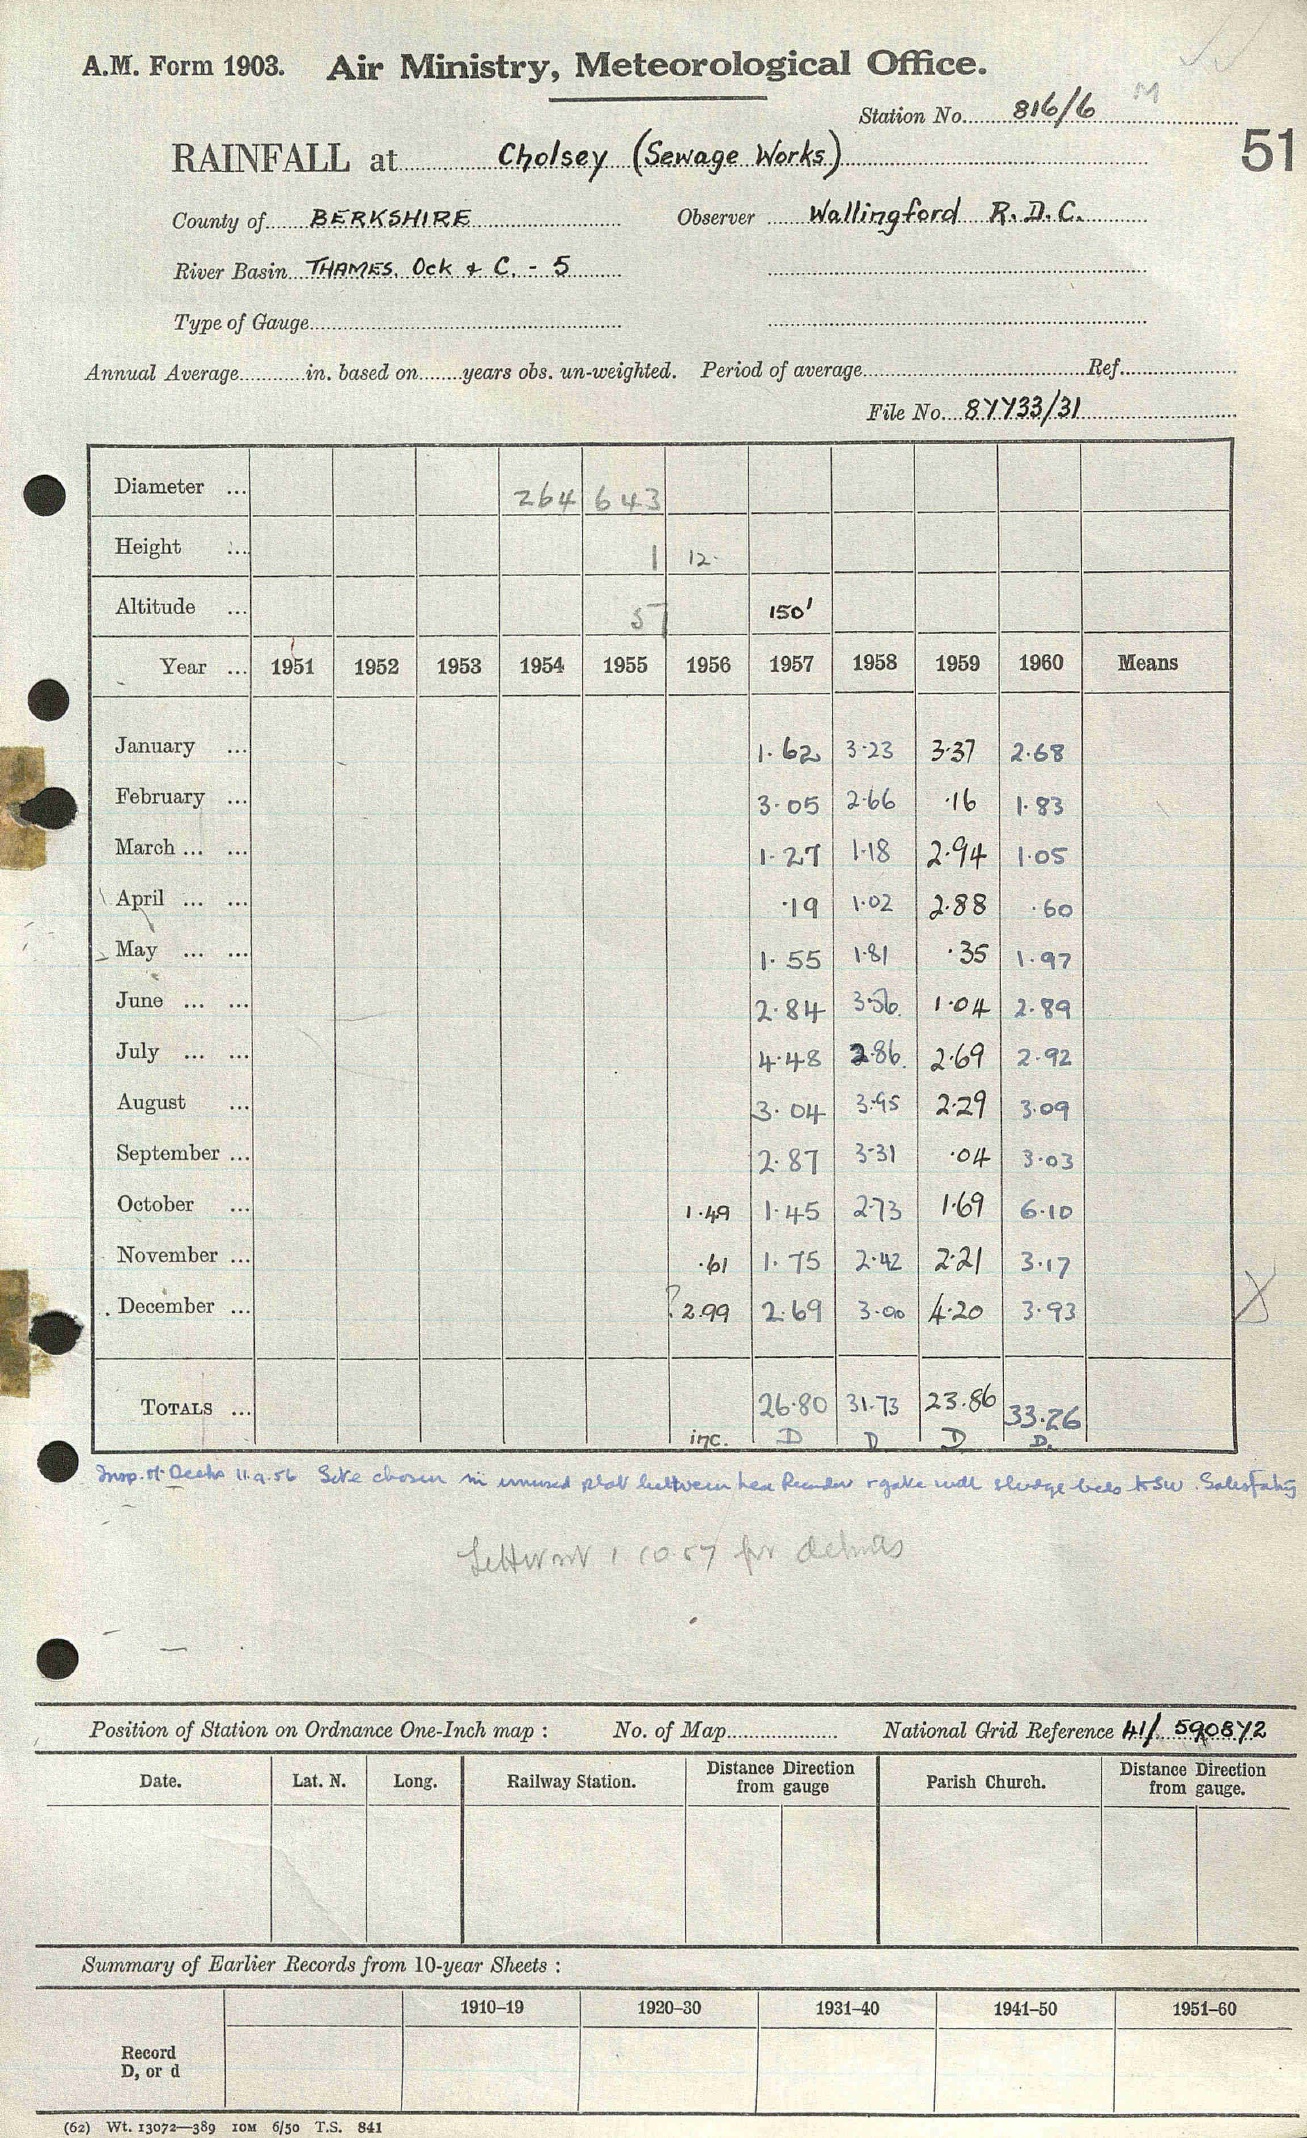 A.M. Form 1903. Air Ministry, Meteorological Office.
Station No. 816/6 M
51
RAINFALL at Cholsey (Sewage Works)
County of BERKSHIRE Observer Wallingford R.D.C.
River Basin THAMES. Ock & C. - 5
Type of Gauge
Annual Average in. based on years obs. un-weighted. Period of average Ref.
File No. 8YY33/31
Diameter ... 264 643
Height ... 1 12
Altitude ... 57 150'
Year ... 1951 1952 1953 1954 1955 1956 1957 1958 1959 1960 Means
January ... 1.62 3.23 3.37 2.68
February ... 3.05 2.66 .16 1.83
March ... ... 1.27 1.18 2.94 1.05
April ... ... .19 1.02 2.88 .60
May ... ... 1.55 1.81 .35 1.97
June ... ... 2.84 3.56 1.04 2.89
July ... ... 4.48 2.86 2.69 2.92
August ... 3.04 3.95 2.29 3.09
September ... 2.87 3.31 .04 3.03
October ... 1.49 1.45 2.73 1.69 6.10
November ... .61 1.75 2.42 2.21 3.17
December ... ? 2.99 2.69 3.00 4.20 3.93
TOTALS ... 26.80 31.73 23.86 33.26
inc. D D D D.
Insp. 11.9.56 Site chosen in unused plot between & gate sludge beds to SW.
1 10 57 for details
Position of Station on Ordnance One-Inch map : No. of Map National Grid Reference 41/ 590872
Date. Lat. N. Long. Railway Station. Distance from gauge Direction Parish Church. Distance from gauge. Direction
Summary of Earlier Records from 10-year Sheets :
1910–19 1920–30 1931–40 1941–50 1951–60
Record
D, or d
(62) Wt. 13072—389 10M 6/50 T.S. 841